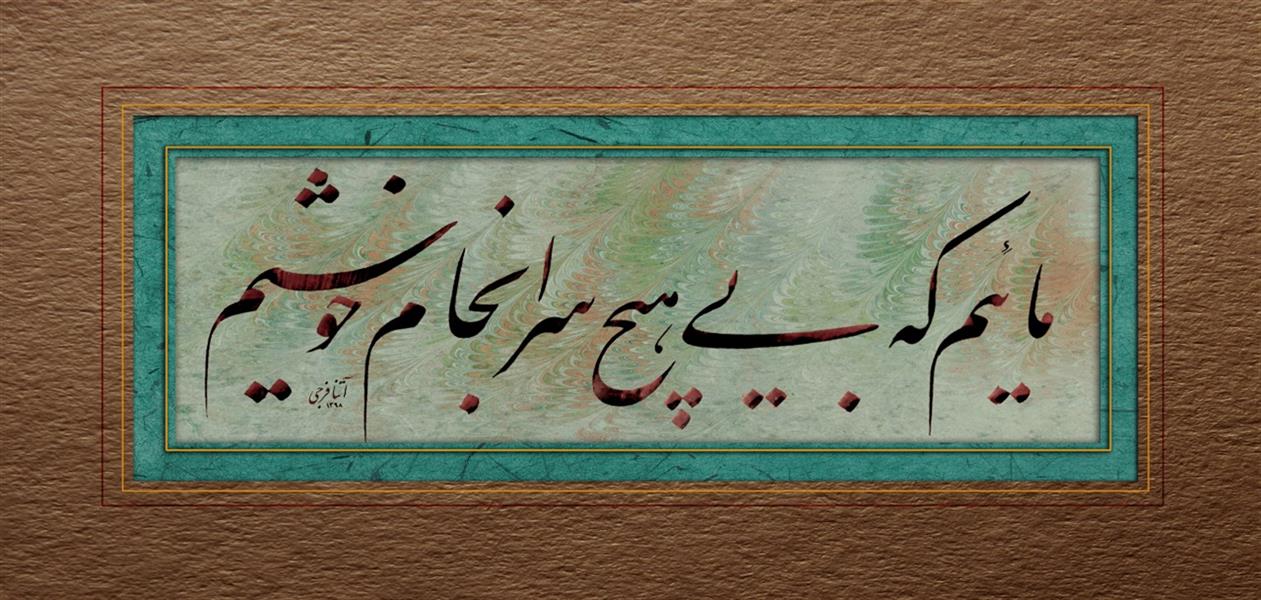 مائیم که بی هیچ سرانجام خوشیم
آتنا فرجی
۱۳۹۸